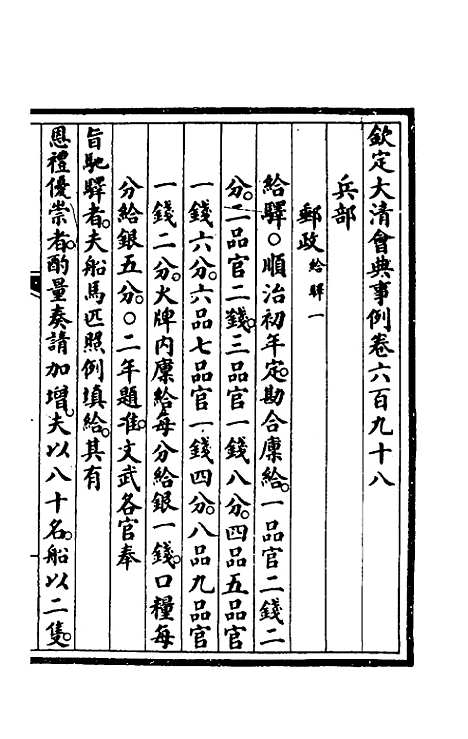 欽定大清會典事例卷六百九十八
兵部
郵政給驛一
給驛○順治初年定。勘合廩給。一品官二錢二
分。二品官二錢。三品官一錢八分。四品五品官
一錢六分。六品七品官一錢四分。八品九品官
一錢二分。火牌內廩給每分給銀一錢。口糧每
分給銀五分。○二年題准。文武各官奉
旨馳驛者。夫船馬匹照例填給。其有
恩禮優崇者。酌量奏請加增。夫以八十名。船以二隻。